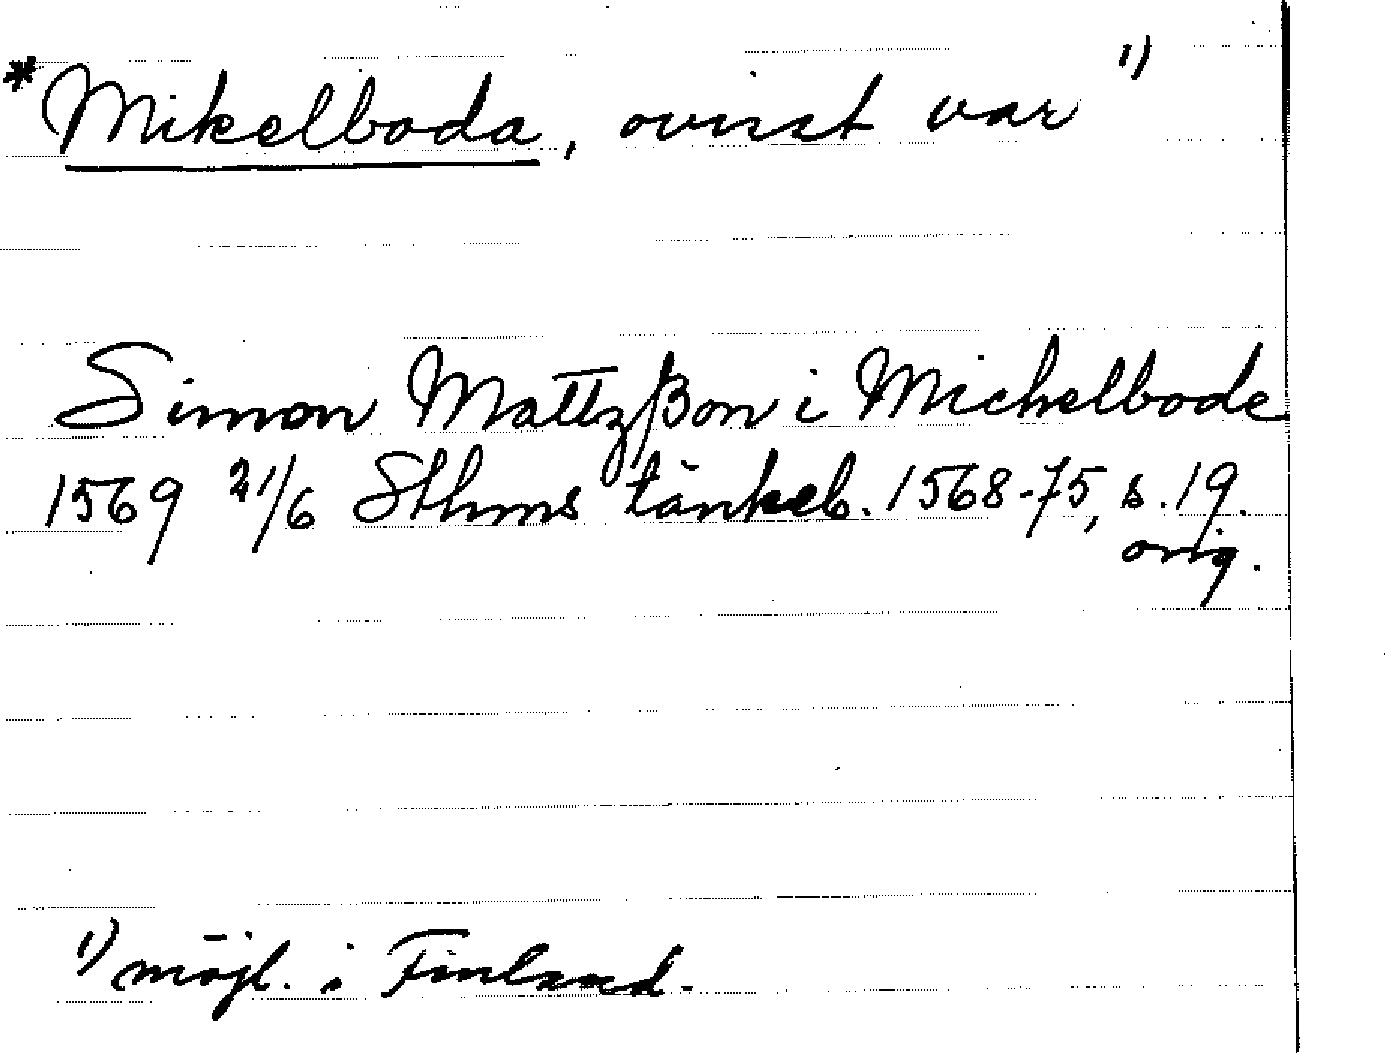 *Mikelboda, ovisst var 1)
Simon Mattzßon i Michelbode
1569 21/6 Sthms tänkeb. 1568-75, s. 19.
orig.
1) möjl. i Finland.